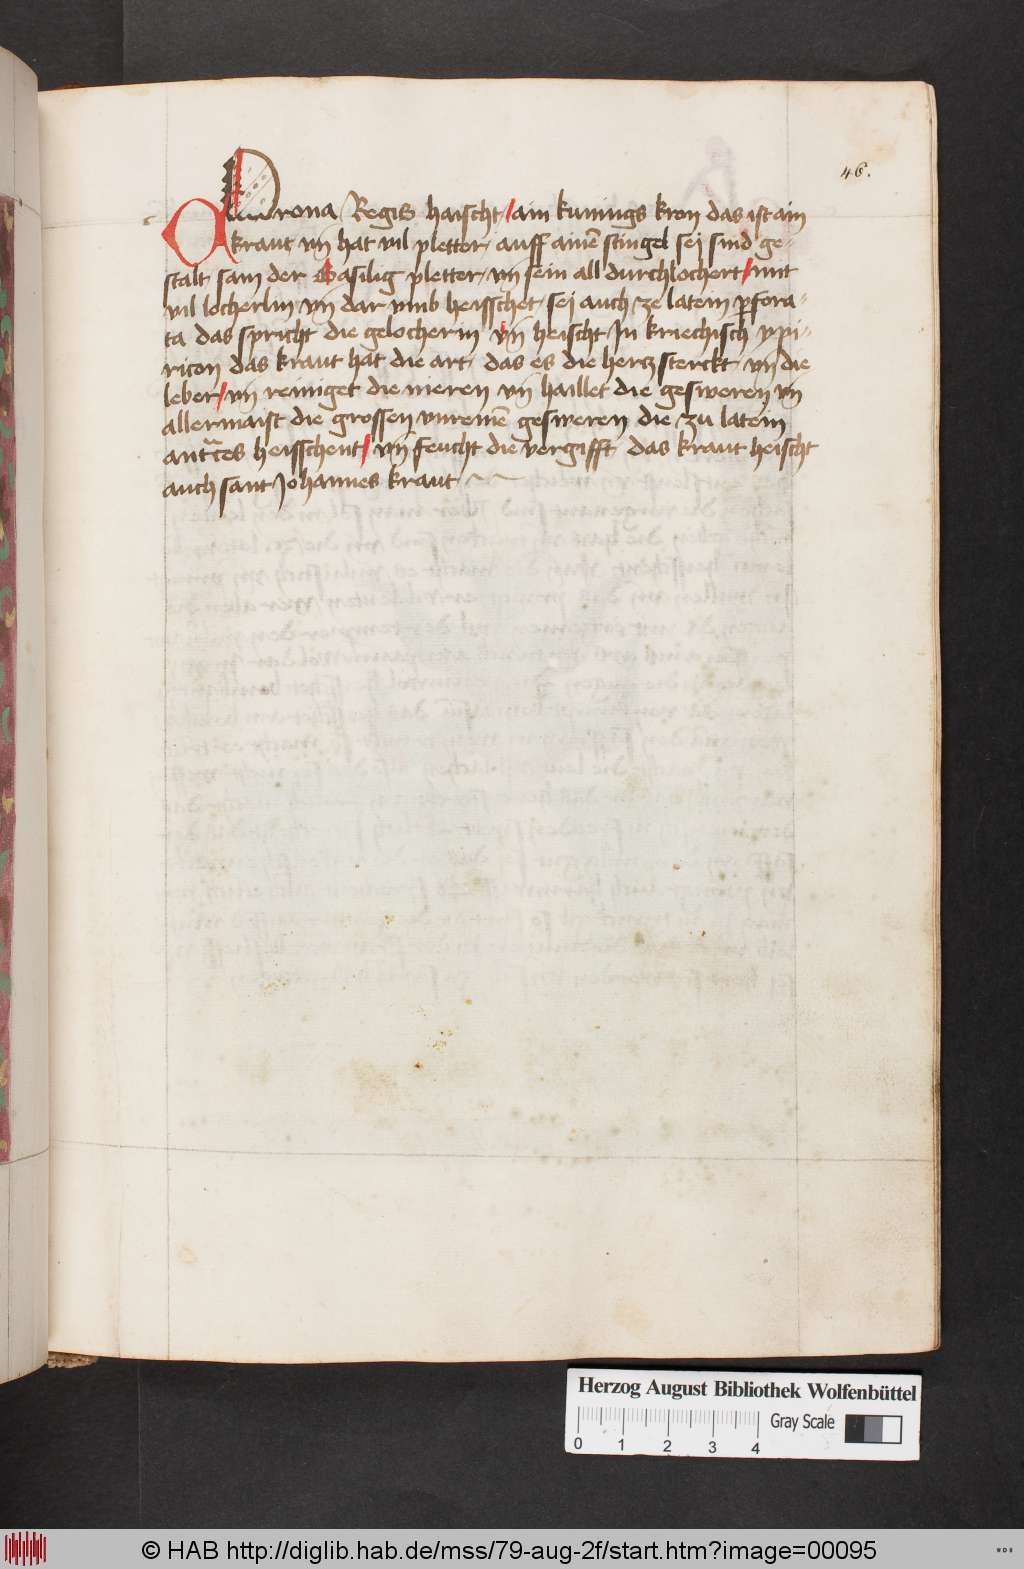 46.
Corona Regis haischt / ain kunnigs kron das ist ain
kraut vn̄ hat vil pletter auff ainē stingel sej sind ge-
stalt sam der Basilig pletter vn̄ sein all durchlochert / mit
vil locherlin vn̄ dar vmb heisschet sej auch ze latein ꝑfora-
ta das spricht die gelocherin vn̄ heischt Jn kriechisch ypi-
ricon das kraut hat die art das es die hertz sterckt vn̄ die
leber / vn̄ reiniget die nieren vn̄ haillet die gesweren vn̄
allermaist die grossen vnreinē gesweren die zu latein
heisschent / vn̄ feucht die vergifft das kraut heischt
auch sant Johannes kraut
Herzog August Bibliothek Wolfenbüttel
Gray Scale
0 1 2 3 4
© HAB http://diglib.hab.de/mss/79-aug-2f/start.htm?image=00095